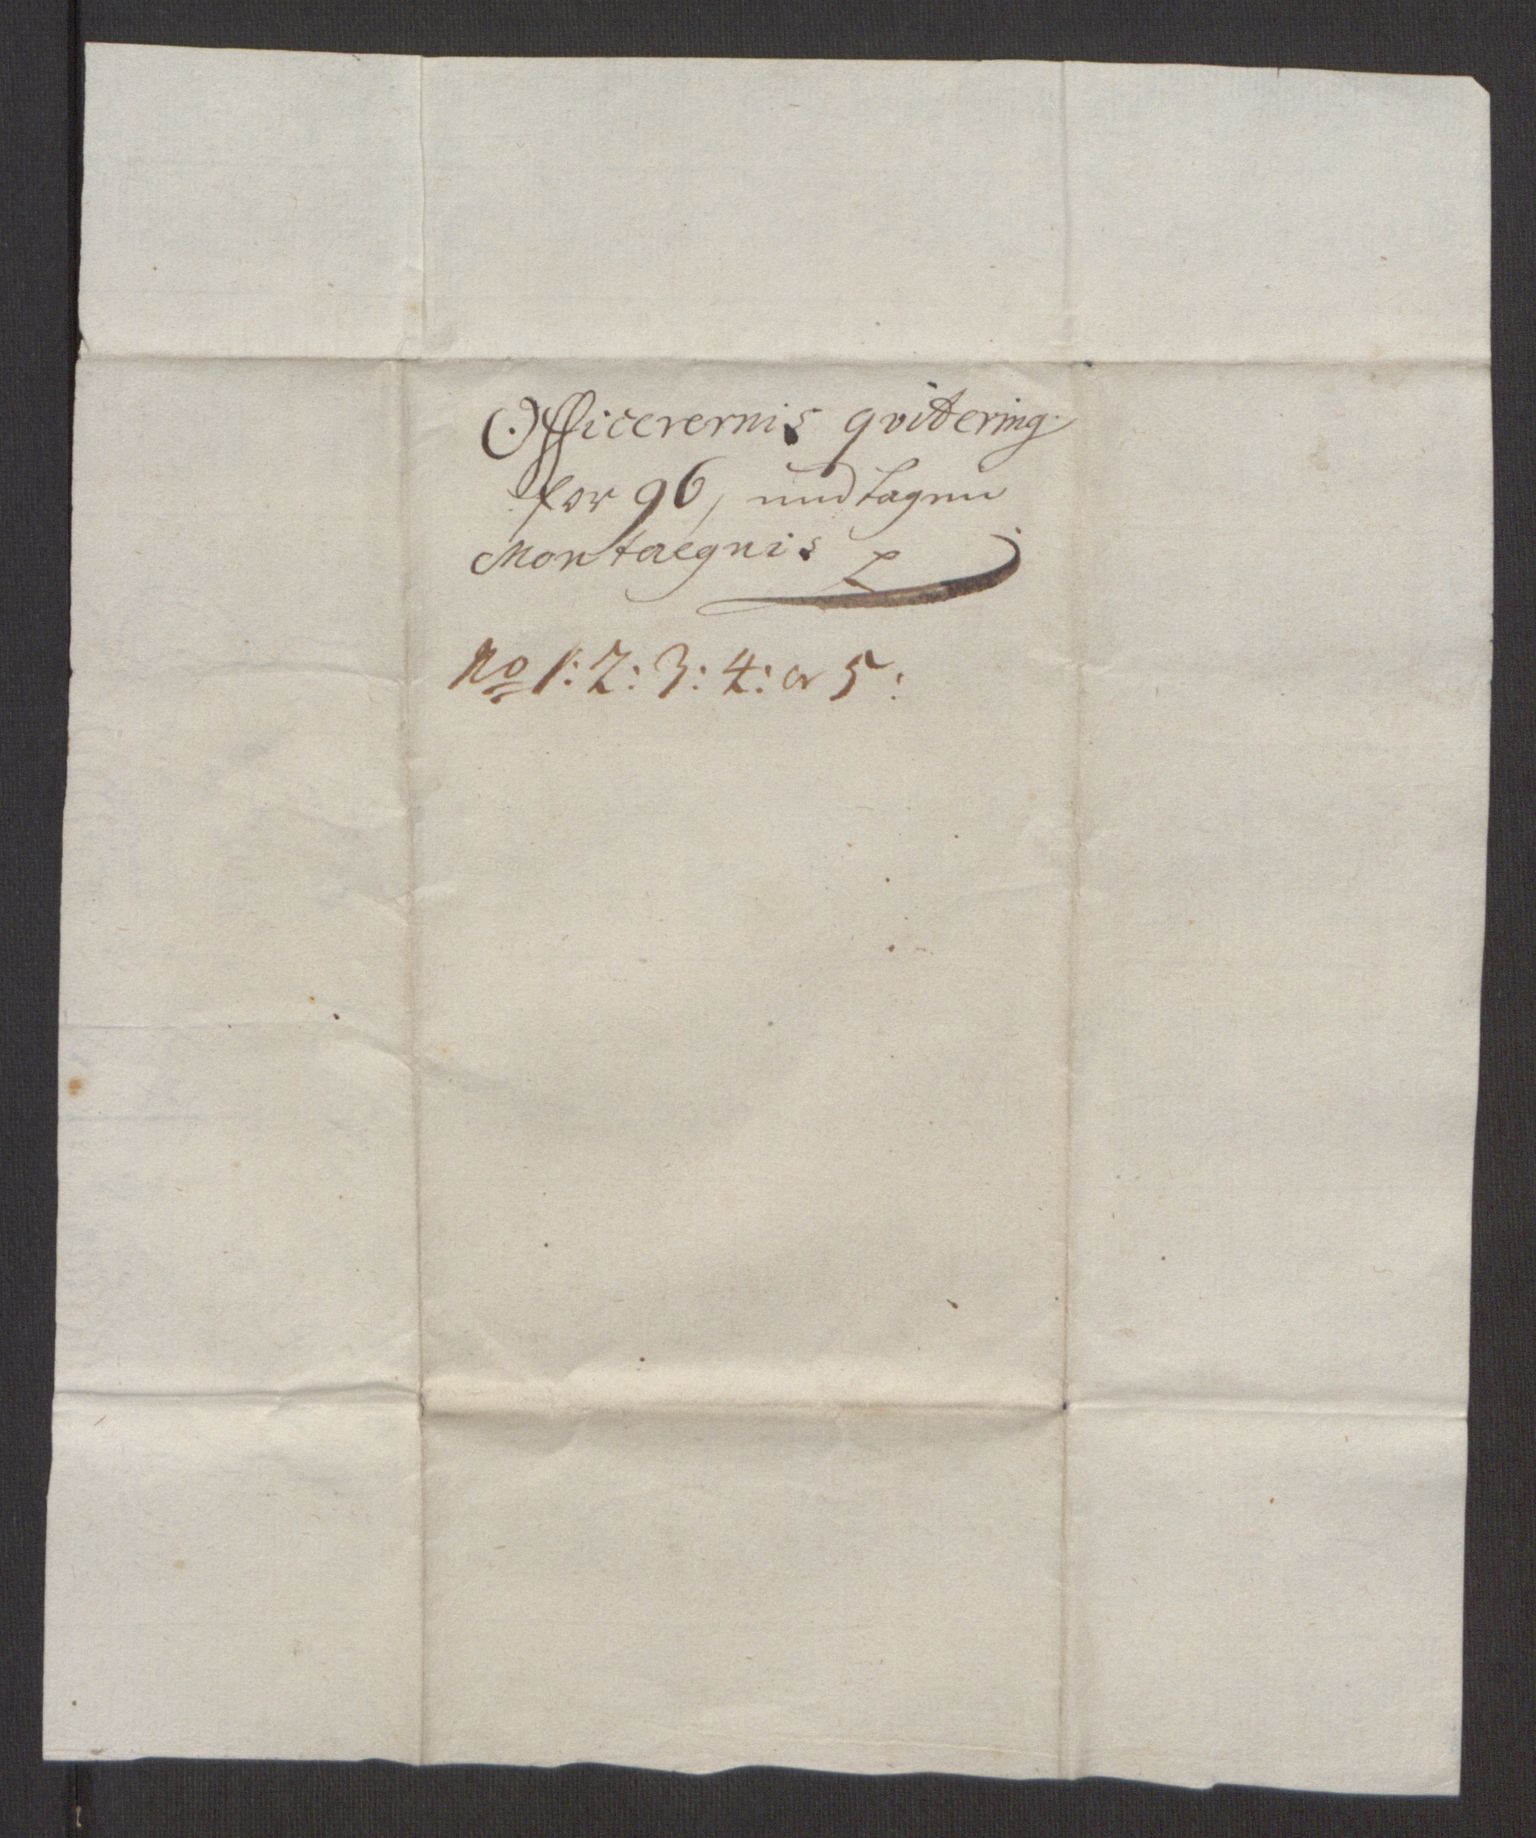 Officerernis qvittering
for 96, undtagen
Montaegnis
No 1: 2: 3: 4: or 5: